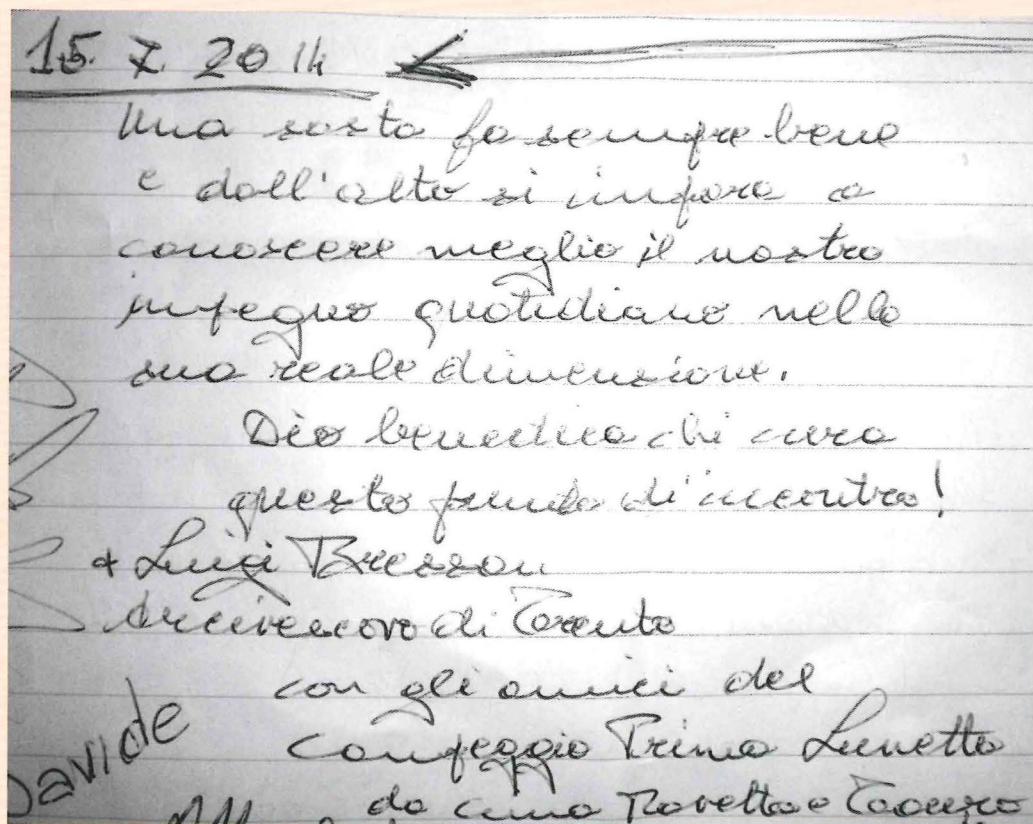 15. 7. 2014
Una sosta fa sempre bene
e dall'alto si impara a
conoscere meglio il nostro
impegno quotidiano nella
sua reale dimensione.
Dio benedica chi cura
questo punto di incontro!
+ Luigi Bressan
Arcivescovo di Trento
con gli amici del
campeggio Prima Lunetta
Davide
da Cima